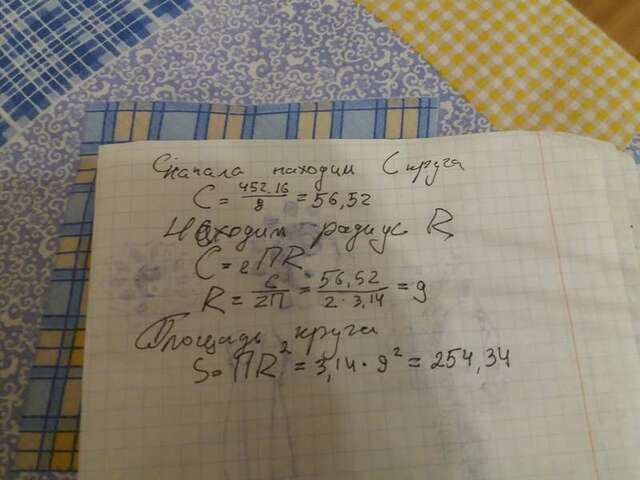 Сначала находим C круга
C = 452,16 / 8 = 56,52
Находим радиус R
C = 2ПR
R = C / 2П = 56,52 / 2 · 3,14 = 9
Площадь круга
S = ПR² = 3,14 · 9² = 254,34